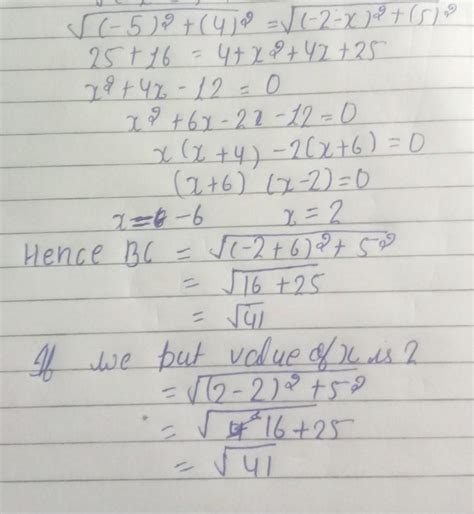 √(-5)² + (4)² = √(-2-x)² + (5)²
25 + 16 = 4 + x² + 4x + 25
x² + 4x - 12 = 0
x² + 6x - 2x - 12 = 0
x (x + 4) - 2(x + 6) = 0
(x+6) (x-2) = 0
x = -6 x = 2
Hence BC = √(-2+6)² + 5²
= √16 + 25
= √41
If we put value of x is 2
= √(2-2)² + 5²
= √16 + 25
= √41